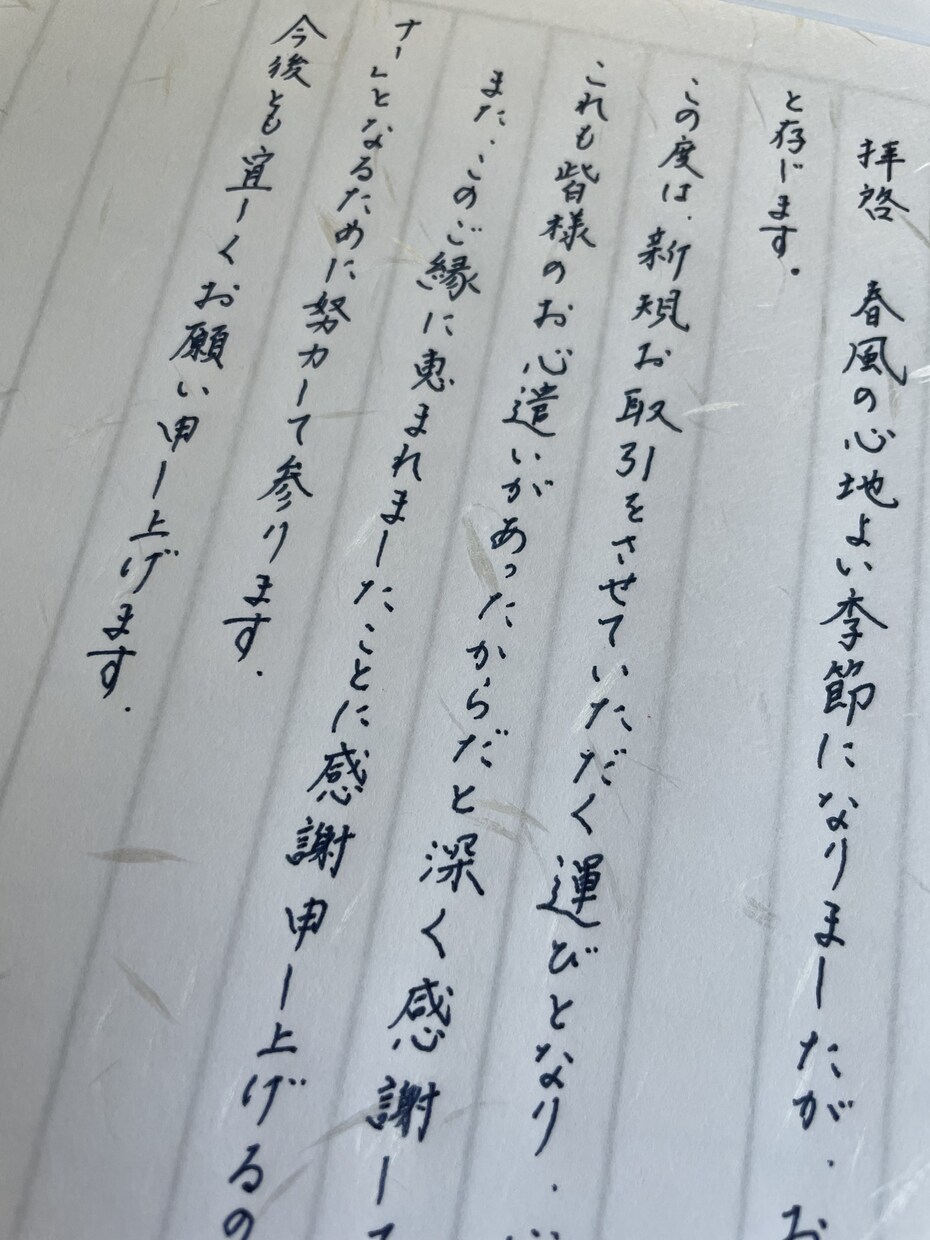 拝啓 春風の心地よい季節になりましたが、お
と存じます。
この度は、新規お取引をさせていただく運びとなり、
これも皆様のお心遣いがあったからだと深く感謝して
また、このご縁に恵まれましたことに感謝申し上げるの
ナー」となるために努力して参ります。
今後とも宜しくお願い申し上げます。